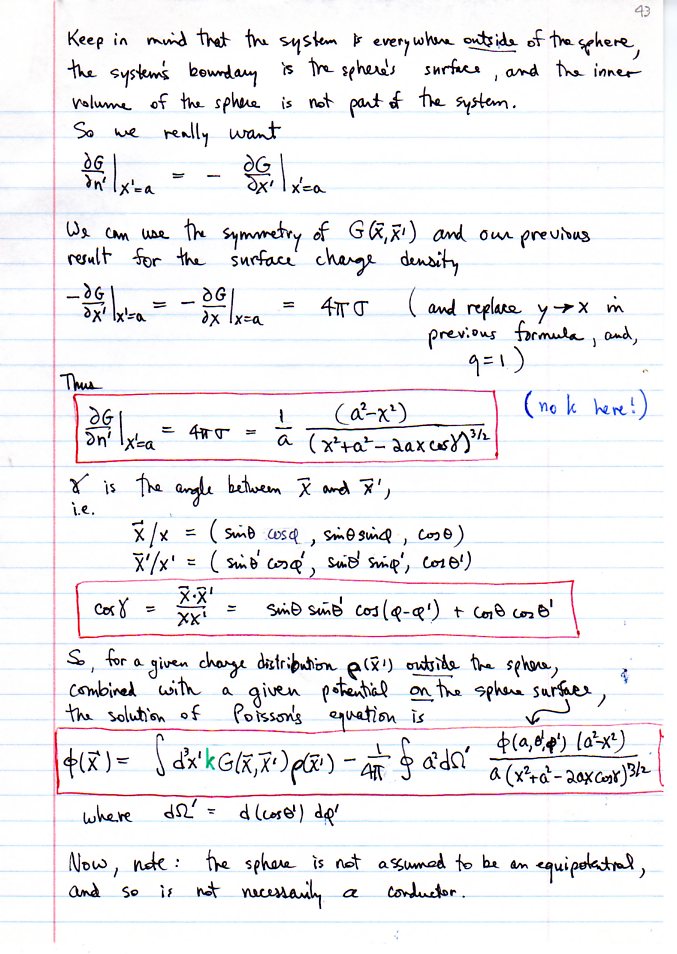 43
Keep in mind that the system is everywhere outside of the sphere,
the system's boundary is the sphere's surface, and the inner
volume of the sphere is not part of the system.
So we really want
∂G/∂n'|x'=a = - ∂G/∂x'|x'=a
We can use the symmetry of G(x⃗,x⃗') and our previous
result for the surface charge density
-∂G/∂x'|x'=a = -∂G/∂x|x=a = 4πσ (and replace y→x in
previous formula, and,
q=1)
Thus
∂G/∂n'|x'=a = 4πσ = 1/a (a²-x²)/(x²+a²-2ax cosγ)^3/2 (no k here!)
γ is the angle between x⃗ and x⃗',
i.e.
x⃗/x = (sinθ cosφ, sinθ sinφ, cosθ)
x⃗'/x' = (sinθ' cosφ', sinθ' sinφ', cosθ')
cosγ = x⃗·x⃗'/xx' = sinθ sinθ' cos(φ-φ') + cosθ cosθ'
So, for a given charge distribution ρ(x⃗') outside the sphere,
combined with a given potential on the sphere surface,
the solution of Poisson's equation is
φ(x⃗) = ∫d³x' k G(x⃗,x⃗')ρ(x⃗') - 1/4π ∮ a²dΩ' φ(a,θ',φ')(a²-x²)/a(x²+a²-2ax cosγ)^3/2
where dΩ' = d(cosθ') dφ'
Now, note: the sphere is not assumed to be an equipotential,
and so is not necessarily a conductor.